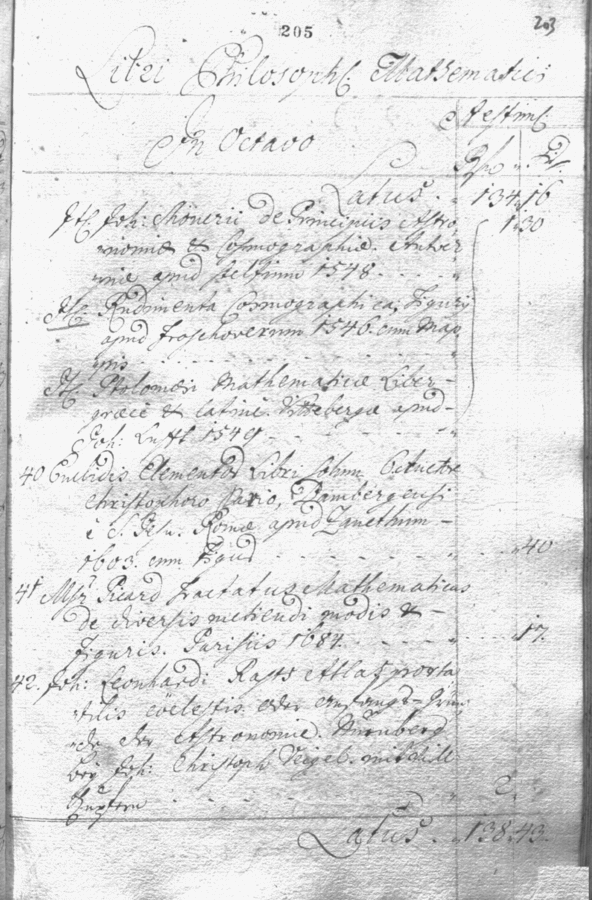 205
203
Libri Philosoph. Mathematici
In Octavo
Aestim.
Latus. 134. 16
It. Joh: Schönerii de Principiis Astro
nomiae & Cosmographiae. Antver
piae apud 1548. 1. 30
It. Rudimenta Cosmographica, Figuris
apud Froschoverum 1546. cum Map
pis
It. Ptolomaei Mathematicae Liber
graece & latine. Witteberga apud
Joh: Lufft 1549
40 Euclidis Elementor Libri
Christophoro Clavio, Bambergensi
è S. Jesu. Romae apud Zanethum
1603. cum Figur 40
41 Picard Tractatus Mathematicus
de diversis metiendi modis &
Figuris. Parisiis 1684. 17.
42. Joh: Leonhardi Rosts Atlas porta
tilis coelestis. oder Grün
de der Astronomie. Nürnberg
bey Joh: Christoph Veigel. mit vill
Kupfern 2.
Latus. 138. 43.